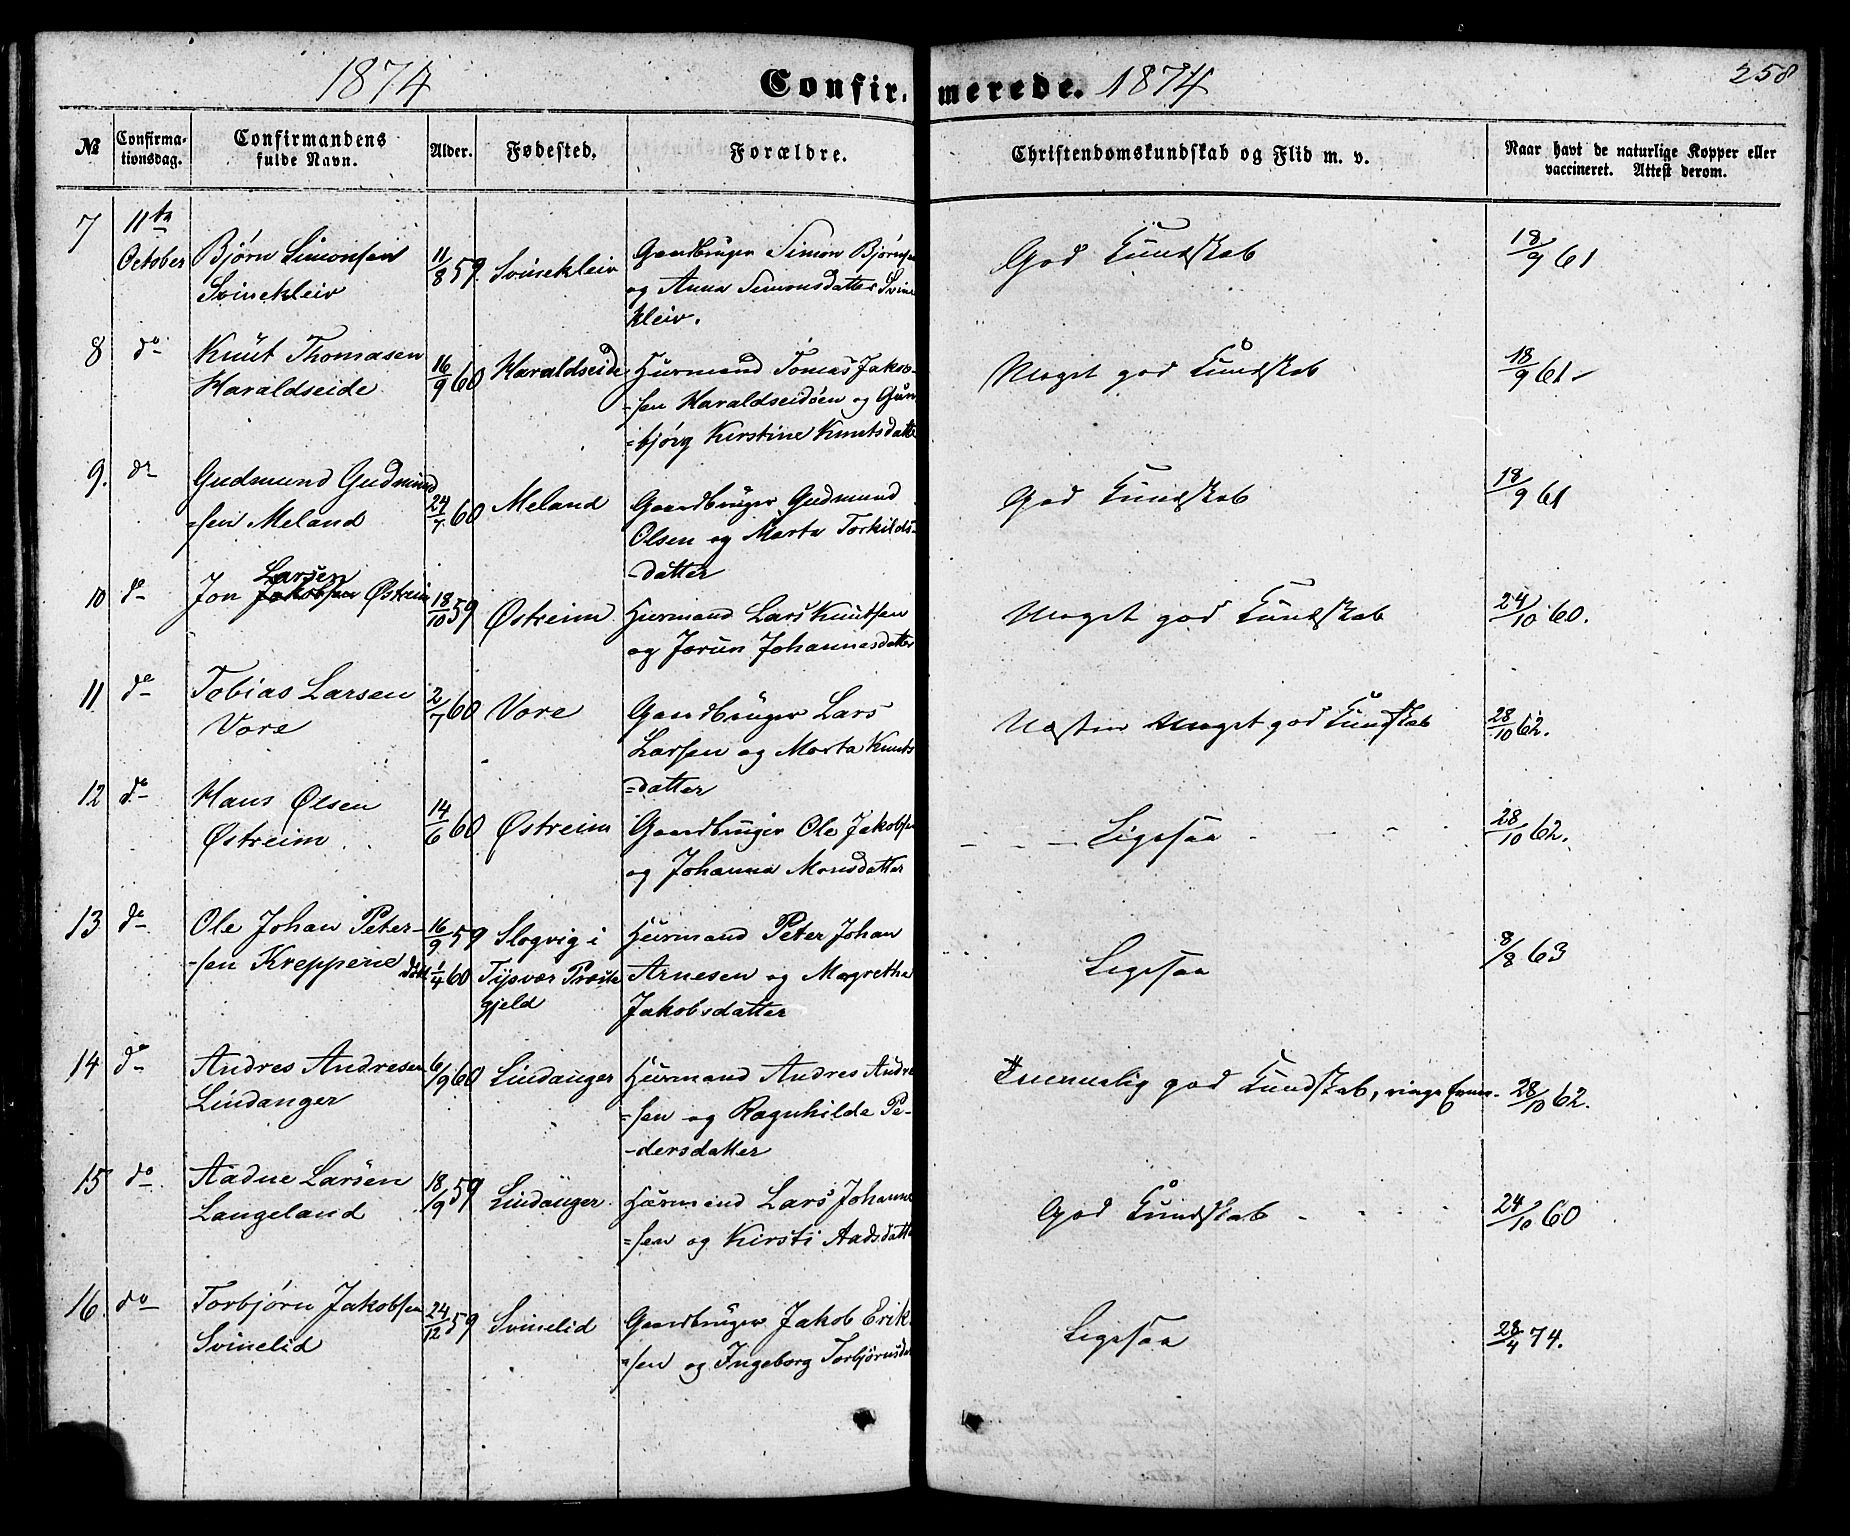 1874 Confirmerede. 1874 258
№ Confirmationsdag. Confirmandens fulde Navn. Alder. Fødested. Forældre. Christendomskundskab og Flid m. v. Naar havt de naturlige Kopper eller vaccineret. Attest derom.
7 11te October Bjørn Simonsen 11/8 59. Svinekleiv Gaardbruger Simon Bjørnsen God Kundskab 18/9 61
Svinekleiv og Anna Simonsdatter Svine
kleiv.
8 do Knut Thomasen 16/9 60 Haraldseide Huusmand Tomas Jakob- Meget god Kundskab 18/9 61-
Haraldseide =sen Haraldseidøen og Gun
=bjørg Kirstine Knutsdatter
9. do Gudmund Gudmund 24/7 60 Meland Gaardbruger Gudmund God Kundskab 18/9 61
=sen Meland Olsen og Marta Torkilds-
-datter
Larsen
10 do Jon Jakobsen Østreim 18/10 59 Østreim Huusmand Lars Knutsen Meget god Kundskab 24/10 60.
og Jorun Johannesdatter
11 do Tobias Larsen 2/7 60 Vore Gaardbruger Lars Næsten Meget god Kundskab 28/10 62.
Vore Larsen og Marta Knuts
=datter
12 do Hans Olsen 14/6 60 Østreim Gaardbruger Ole Jakobsen - - - Ligesaa - - - 28/10 62.
Østreim og Johanna Monsdatter
13 do Ole Johan Peter- 16/9 59 Slogvig i Huusmand Peter Johan Ligesaa 8/8 63
-sen Kreppene døbt 1/4 60 Tysvær Præste Arnesen og Magretha
gjeld Jakobsdatter
14 do Andres Andresen 6/9 60 Lindanger Huusmand Andres Andre Temmelig god Kundskab, ringe Evner. 28/10 62.
Lindanger =sen og Ragnhilde Pe-
-dersdatter
15 do Aadne Larsen 18/9 59 Lindanger Huusmand Lars Johanne God Kundskab - - - 24/10 60
Langeland =sen og Kirsti Aadsdatter
16. do Torbjørn Jakobsen 24/12 59 Svinelid Gaardbruger Jakob Erik Ligesaa 28/4 74.
Svinelid =sen og Ingeborg Torbjørnsda